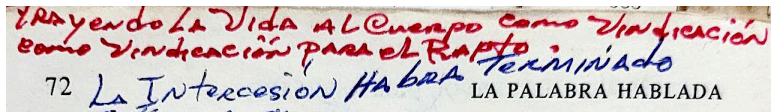 TRAYENDO LA VIDA AL CUERPO COMO VINDICACIÓN
COMO VINDICACIÓN PARA EL RAPTO.
LA INTERCESIÓN HABRA TERMINADO
72 LA PALABRA HABLADA